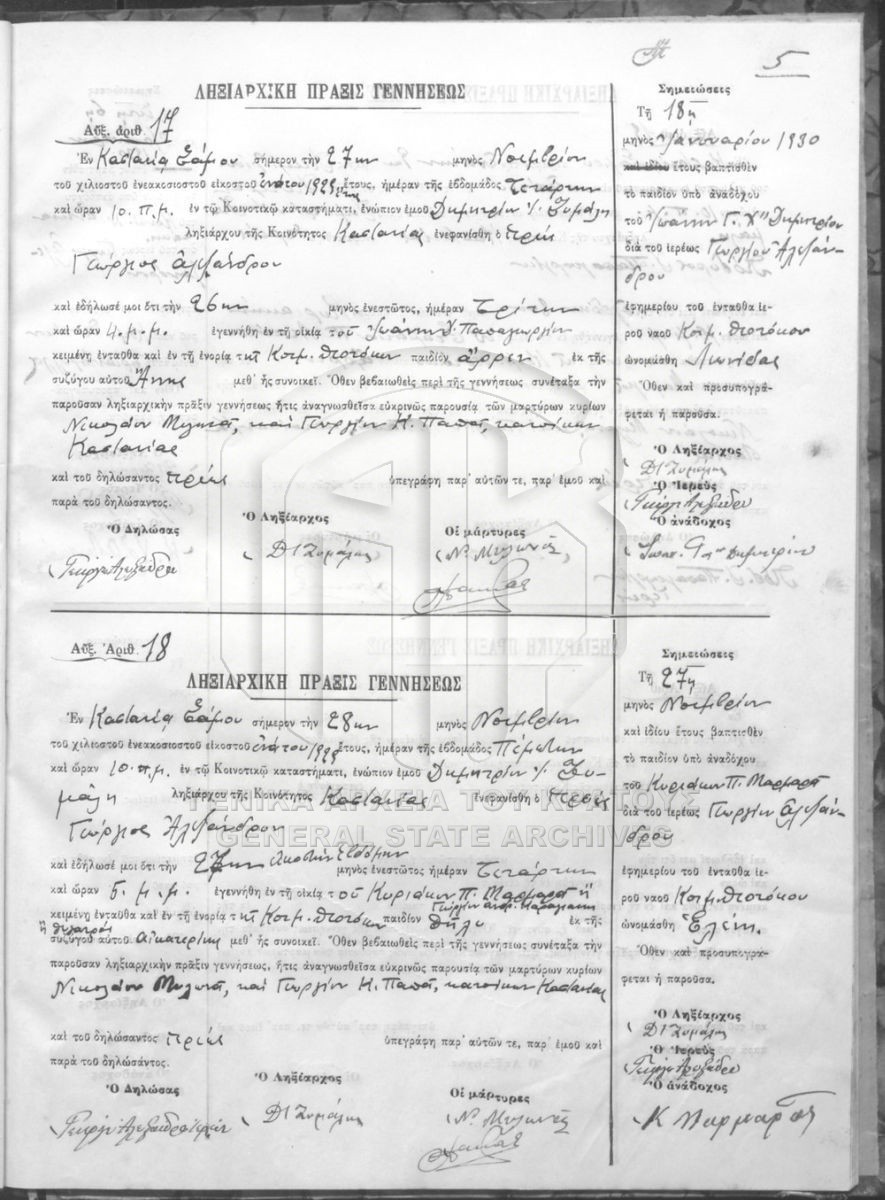 5
ΛΗΞΙΑΡΧΙΚΗ ΠΡΑΞΙΣ ΓΕΝΝΗΣΕΩΣ
Αὔξ. ἀριθ. 17
Ἐν Καστανιᾷ Σάμου σήμερον τὴν 27ην μηνὸς Νοεμβρίου
τοῦ χιλιοστοῦ ἐνεακοσιοστοῦ εἰκοστοῦ ἐνάτου 1929 ἔτους, ἡμέραν τῆς ἑβδομάδος Τετάρτην
καὶ ὥραν 10. π.μ. ἐν τῷ Κοινοτικῷ καταστήματι, ἐνώπιον ἐμοῦ Δημητρίου Ι. Ζυμάλη
ληξιάρχου τῆς Κοινότητος Καστανίας ἐνεφανίσθη ὁ ἱερεὺς
Γεώργιος Ἀλεξάνδρου
καὶ ἐδήλωσέ μοι ὅτι τὴν 26ην μηνὸς ἐνεστῶτος, ἡμέραν Τρίτην
καὶ ὥραν 4. μ.μ. ἐγεννήθη ἐν τῇ οἰκίᾳ τοῦ Ἰωάννου Παπαγεωργίου
κειμένῃ ἐνταῦθα καὶ ἐν τῇ ἐνορίᾳ τῆς Κοιμ. Θεοτόκου παιδίον ἄρρεν ἐκ τῆς
συζύγου αὐτοῦ Ἄννης μεθ' ἧς συνοικεῖ. Ὅθεν βεβαιωθεὶς περὶ τῆς γεννήσεως συνέταξα τὴν
παροῦσαν ληξιαρχικὴν πρᾶξιν γεννήσεως ἥτις ἀναγνωσθεῖσα εὐκρινῶς παρουσίᾳ τῶν μαρτύρων κυρίων
Νικολάου Μυλωνᾶ, καὶ Γεωργίου Η. Παπᾶ, κατοίκων
Καστανίας
καὶ τοῦ δηλώσαντος ἱερέως ὑπεγράφη παρ' αὐτῶν τε, παρ' ἐμοῦ καὶ
παρὰ τοῦ δηλώσαντος.
Ὁ Δηλώσας Ὁ Ληξίαρχος Οἱ μάρτυρες
Γεώργ. Ἀλεξάνδρου Δ Ι Ζυμάλης Ν. Μυλωνᾶς
Σημειώσεις
Τῇ 18ῃ
μηνὸς Ἰανουαρίου 1930
καὶ ἰδίου ἔτους βαπτισθὲν
τὸ παιδίον ὑπὸ ἀναδόχου
τοῦ Ἰωάννου Γ. Χ" Δημητρίου
διὰ τοῦ ἱερέως Γεωργίου Ἀλεξάν-
δρου
ἐφημερίου τοῦ ἐνταῦθα ἱε-
ροῦ ναοῦ Κοιμ. Θεοτόκου
ὠνομάσθη Λεωνίδας
Ὅθεν καὶ προσυπογρά-
φεται ἡ παροῦσα.
Ὁ Ληξίαρχος
Δ Ι Ζυμάλης
Ὁ Ἱερεὺς
Γεώργ. Ἀλεξάνδρου
Ὁ ἀνάδοχος
Αὔξ. Ἀριθ. 18
ΛΗΞΙΑΡΧΙΚΗ ΠΡΑΞΙΣ ΓΕΝΝΗΣΕΩΣ
Ἐν Καστανιᾷ Σάμου σήμερον τὴν 28ην μηνὸς Νοεμβρίου
τοῦ χιλιοστοῦ ἐνεακοσιοστοῦ εἰκοστοῦ ἐνάτου 1929 ἔτους, ἡμέραν τῆς ἑβδομάδος Πέμπτην
καὶ ὥραν 10. π.μ. ἐν τῷ Κοινοτικῷ καταστήματι, ἐνώπιον ἐμοῦ Δημητρίου Ι. Ζυ-
μάλη ληξιάρχου τῆς Κοινότητος Καστανίας ἐνεφανίσθη ὁ ἱερεὺς
Γεώργιος Ἀλεξάνδρου
καὶ ἐδήλωσέ μοι ὅτι τὴν 27ην εἰκοστὴν ἑβδόμην μηνὸς ἐνεστῶτος ἡμέραν Τετάρτην
καὶ ὥραν 5. μ.μ. ἐγεννήθη ἐν τῇ οἰκίᾳ τοῦ Κυριάκου Π. Μαρμαρᾶ ἢ
κειμένῃ ἐνταῦθα καὶ ἐν τῇ ἐνορίᾳ τῆς Κοιμ. Θεοτόκου παιδίον θῆλυ ἐκ τῆς
ἢ θυγατρός
συζύγου αὐτοῦ Αἰκατερίνης μεθ' ἧς συνοικεῖ. Ὅθεν βεβαιωθεὶς περὶ τῆς γεννήσεως συνέταξα τὴν
παροῦσαν ληξιαρχικὴν πρᾶξιν γεννήσεως, ἥτις ἀναγνωσθεῖσα εὐκρινῶς παρουσίᾳ τῶν μαρτύρων κυρίων
Νικολάου Μυλωνᾶ, καὶ Γεωργίου Η. Παπᾶ, κατοίκων Καστανίας
καὶ τοῦ δηλώσαντος ἱερέως ὑπεγράφη παρ' αὐτῶν τε, παρ' ἐμοῦ καὶ
παρὰ τοῦ δηλώσαντος.
Ὁ Δηλώσας Ὁ Ληξίαρχος Οἱ μάρτυρες
Γεώργ. Ἀλεξάνδρου ἱερεὺς Δ Ι Ζυμάλης Ν. Μυλωνᾶς
Σημειώσεις
Τῇ 27ῃ
μηνὸς Νοεμβρίου
καὶ ἰδίου ἔτους βαπτισθὲν
τὸ παιδίον ὑπὸ ἀναδόχου
τοῦ Κυριάκου Π. Μαρμαρᾶ
διὰ τοῦ ἱερέως Γεωργίου Ἀλεξάν-
δρου
ἐφημερίου τοῦ ἐνταῦθα ἱε-
ροῦ ναοῦ Κοιμ. Θεοτόκου
ὠνομάσθη Ἑλένη.
Ὅθεν καὶ προσυπογρά-
φεται ἡ παροῦσα.
Ὁ Ληξίαρχος
Δ Ι Ζυμάλης
Ὁ Ἱερεὺς
Γεώργ. Ἀλεξάνδρου
Ὁ ἀνάδοχος
Κ Μαρμαρᾶς
ΓΕΝΙΚΑ ΑΡΧΕΙΑ ΤΟΥ ΚΡΑΤΟΥΣ
GENERAL STATE ARCHIVES